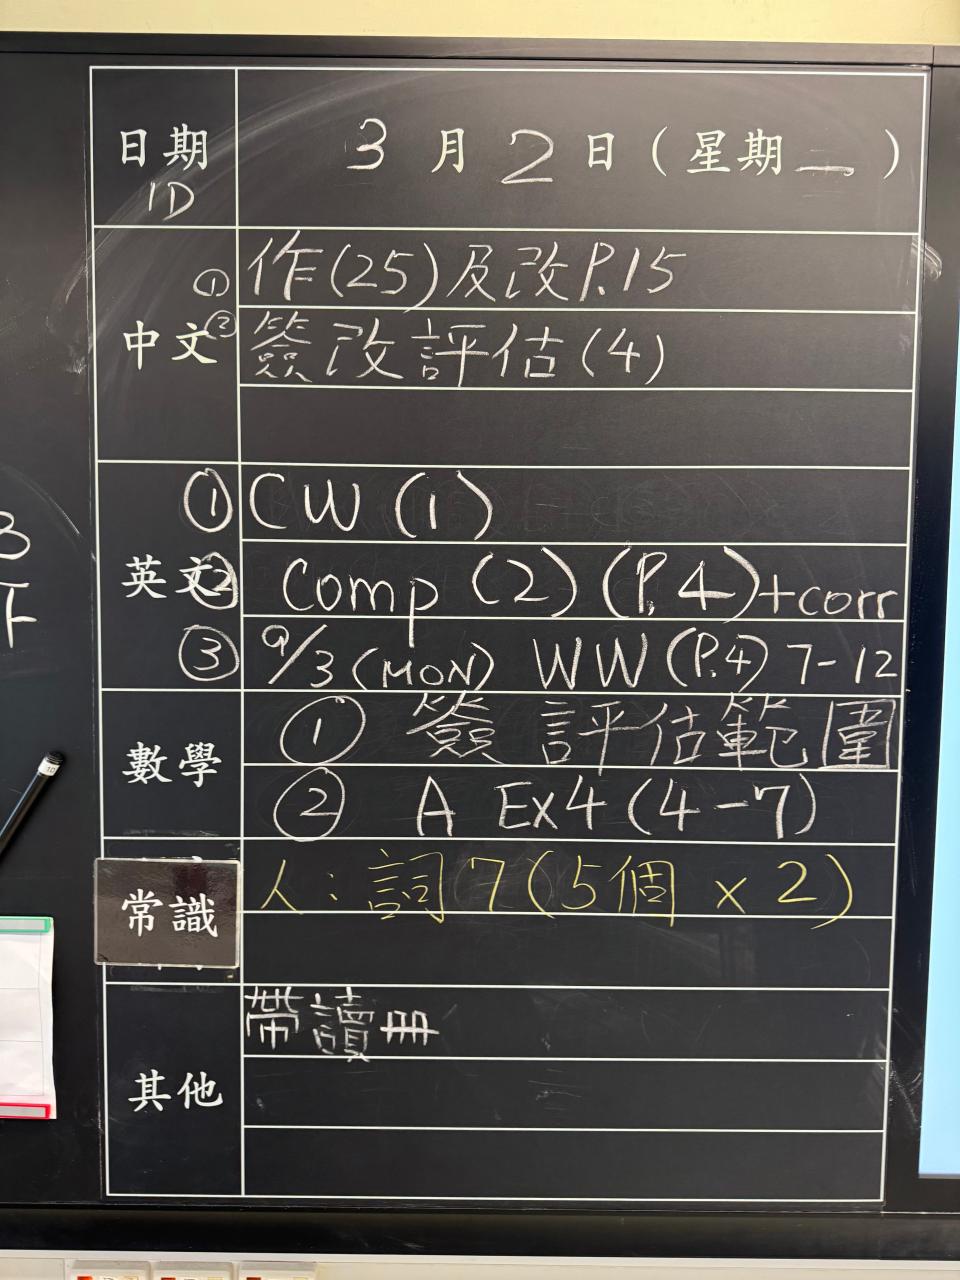 日期 3月2日(星期一)
1D
中文
① 作(25)及改P.15
② 簽改評估(4)
英文
① CW (1)
② Comp (2) (P.4)+corr
③ 9/3 (MON) WW (P.4) 7-12
數學
① 簽評估範圍
② A Ex4 (4-7)
常識
人:詞7(5個 x 2)
其他
帶讀冊